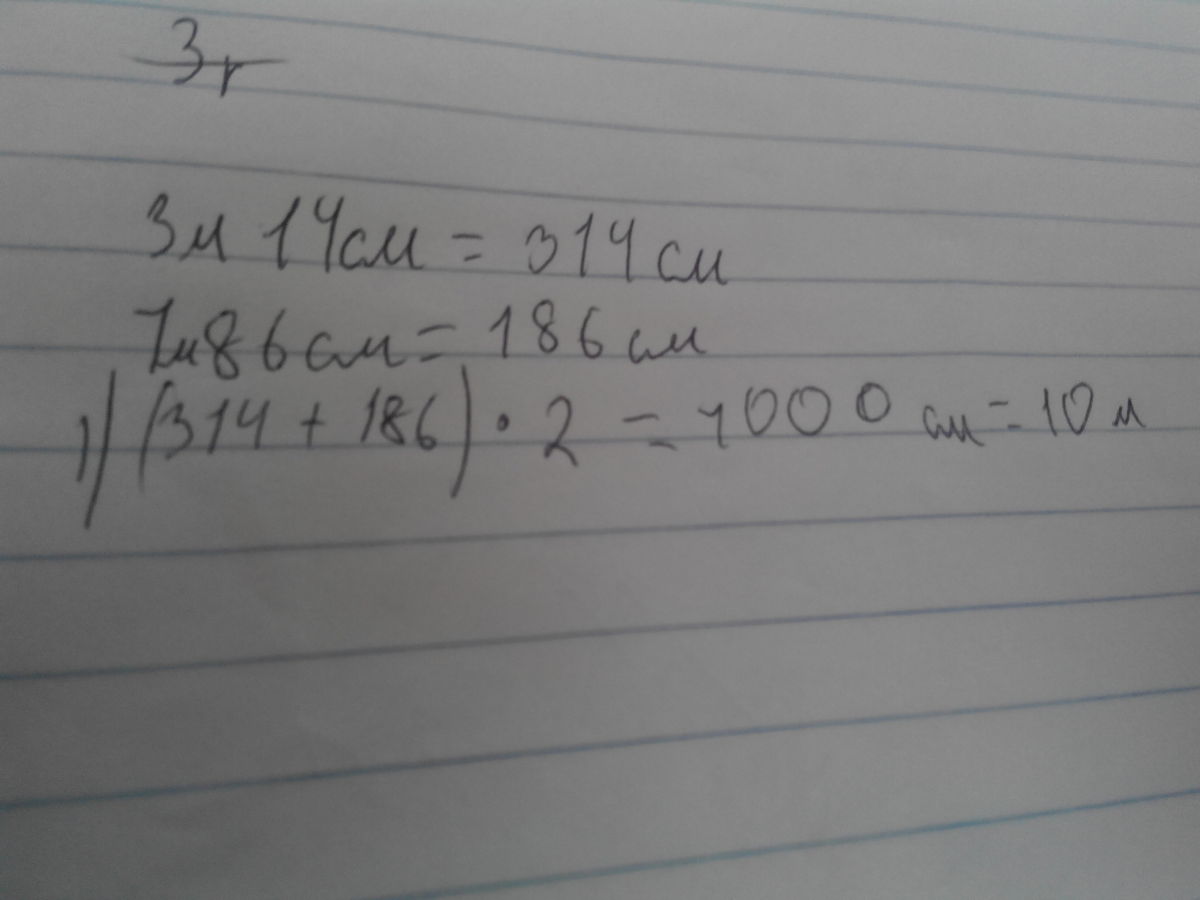 3г
3м 14см = 314 см
1м86см = 186 см
1) (314 + 186) • 2 = 1000 см = 10 м